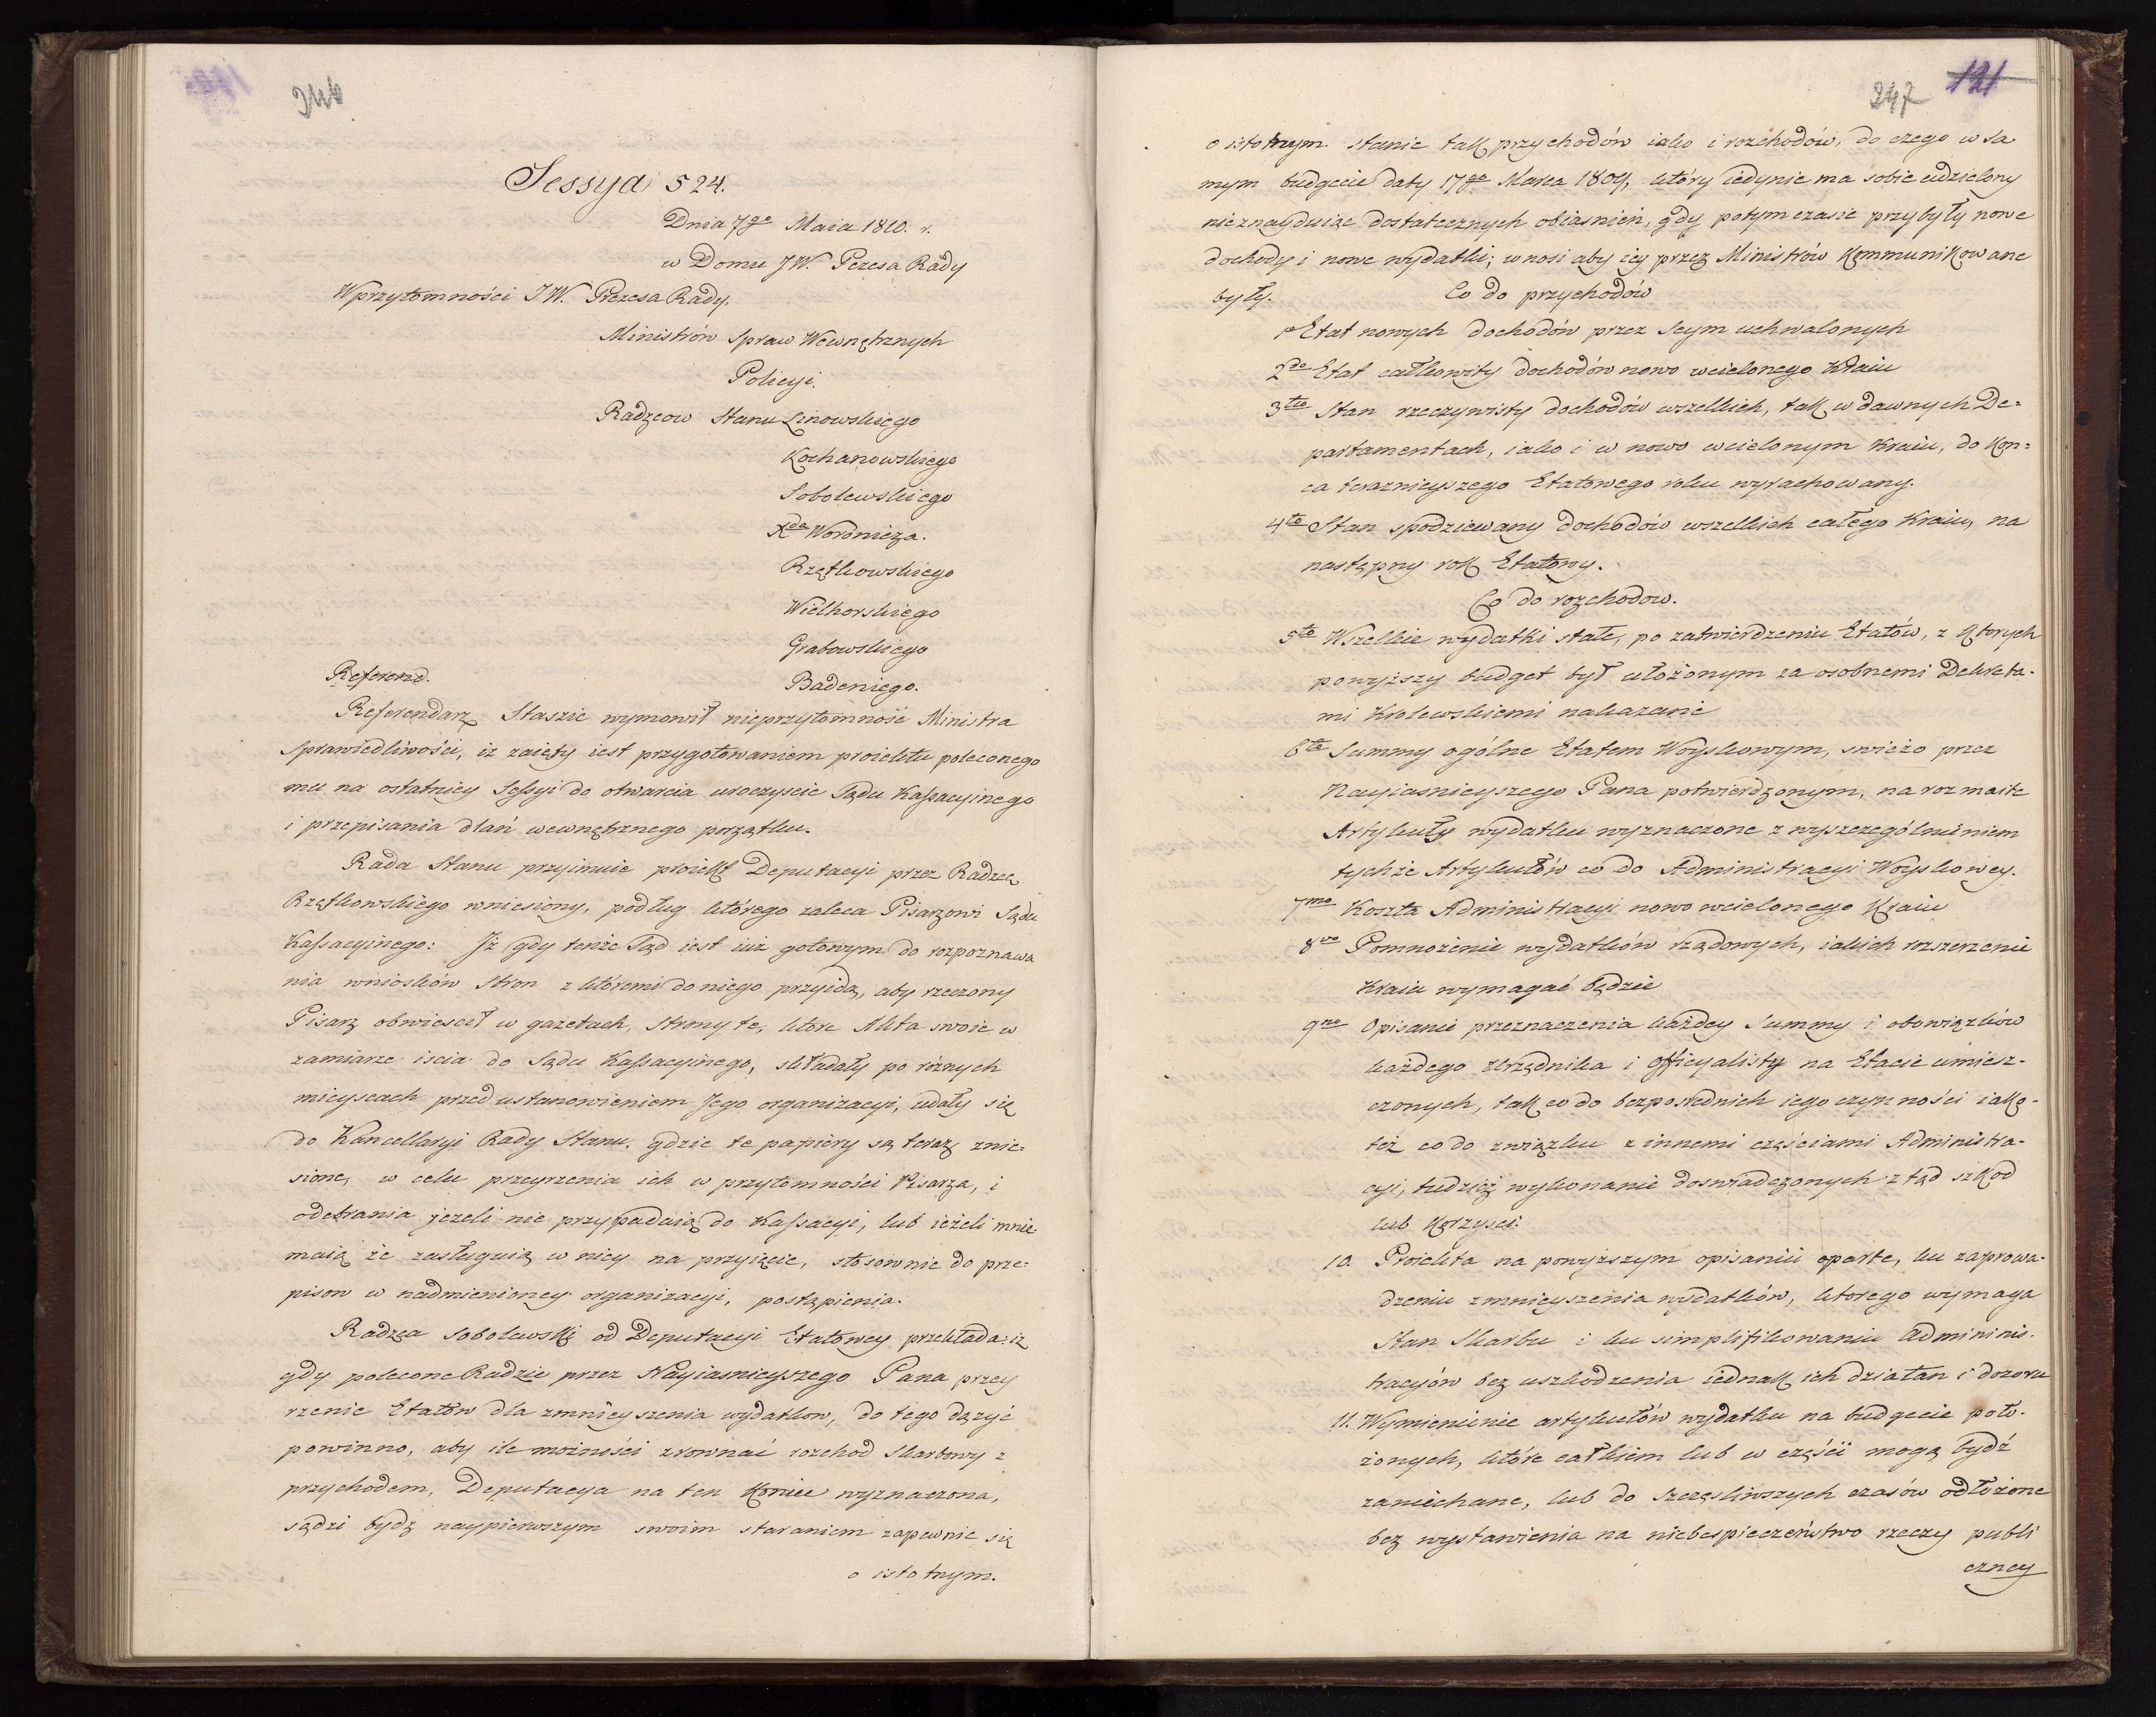 246
Sessya 524.
Dnia 7go Maia 1810. r.
w Domu JW. Pezesa Rady
W przytomności JW. Prezesa Rady.
Ministrów Spraw Wewnętrznych
Policyi.
Radzcow Stanu Linowskiego
Kochanowskiego
Sobolewskiego
Xda Woronicza.
Rzętkowskiego
Wielhorskiego
Grabowskiego
Referend.
Badeniego.
Referendarz Staszic wymowił nieprzytomność Ministra
Sprawiedliwości, iż zaięty iest przygotowaniem proiektu poleconego
mu na ostatniey Sessyi do otwarcia uroczyscie Sądu Kassacyinego
i przepisania dlań wewnętrznego porządku.
Rada Stanu przyimuie proiekt Deputacyi przez Radzcę
Rzętkowskiego wniesiony, podług którego zaleca Pisarzowi Sądu
Kassacyinego: Iż gdy tenże Sąd iest iuż gotowym do rozpoznawa
nia wniosków Stron z któremi do niego przyidą, aby rzeczony
Pisarz obwiescił w gazetach, strony te, które Akta swoie w
zamiarze iscia do Sądu Kassacyinego, składały po różnych
mieyscach przed ustanowieniem Jego organizacyi, udały się
do Kancellaryi Rady Stanu, gdzie te papiery są teraz znie=
sione, w celu przeyrzenia ich w przytomności Pisarza, i
odebrania jeżeli nie przypadaią do Kassacyi, lub ieżeli mnie-
maią że zasługuią w niey na przyięcie, stosownie do prze=
pisow w nadmienioney organizacyi, postąpienia.
Radzca Sobolewski od Deputacyi Etatowey przekłada: iż
gdy polecone Radzie przez Nayiasnieyszego Pana przey
rzenie Etatów dla zmnieyszenia wydatkow, do tego dążyć
powinno, aby ile możności zrownać rozchod Skarbowy z
przychodem, Deputacya na ten Koniec wyznaczona,
sądzi bydź naypierwszym swoim staraniem zapewnić się
o istotnym.
247 121
o istotnym stanie tak przychodów iako i rozchodów, do czego w sa
mym budgecie daty 17go Marca 1809, który iedynie ma sobie udzielony
nieznayduiąc dostatecznych obiasnień, gdy potym czasie przybyły nowe
dochody i nowe wydatki; wnosi aby iey przez Ministrów Kommunikowane
były. Co do przychodów
1o Etat nowych dochodów przez Seym uchwalonych
2do Etat całkowity dochodów nowo wcielonego Kraiu
3tio Stan rzeczywisty dochodów wszelkich, tak w dawnych De=
partamentach, iako i w nowo wcielonym Kraiu, do Kon=
ca teraznieyszego Etatowego roku wyrachowany.
4to Stan spodziewany dochodów wszelkich całego Kraiu, na
następny rok Etatowy.
Co do rozchodow.
5to Wszelkie wydatki stałe, po zatwierdzeniu Etatów, z Ktorych
powyższy budget był ułożonym za osobnemi Dekreta-
mi Krolewskiemi nakazane
6to Summy ogólne Etatem Woyskowym, swieżo przez
Nayiasnieyszego Pana potwierdzonym, na rozmaite
Artykuły wydatku wyznaczone z wyszczególnieniem
tychże Artykułów co do Administracyi Woyskowey.
7mo Koszta Administracyi nowo wcielonego Kraiu
8vo Pomnożenie wydatków rządowych, iakich rozszerzenie
Kraiu wymagać będzie
9no Opisanie przeznaczenia każdey Summy i obowiązków
każdego Urzędnika i Officyalisty na Etacie umiesz-
czonych, tak co do bezposrednich iego czynności iako-
też co do związku z innemi częściami Administra-
cyi, tudzież wykonanie doswiadczonych z tąd szkod
lub Korzysci:
10. Proiekta na powyższym opisaniu oparte, ku zaprowa-
dzeniu zmnieyszenia wydatków, ktorego wymaga
Stan Skarbu i ku simplifikowaniu Admininis-
tracyów bez uszkodzenia iednak ich działan i dozoru
11. Wymienienie artykułów wydatku na budgecie poło-
żonych, które całkiem lub w części mogą bydź
zaniechane, lub do szczęsliwszych czasów odłożone
bez wystawienia na niebespieczeństwo rzeczy publi
czney